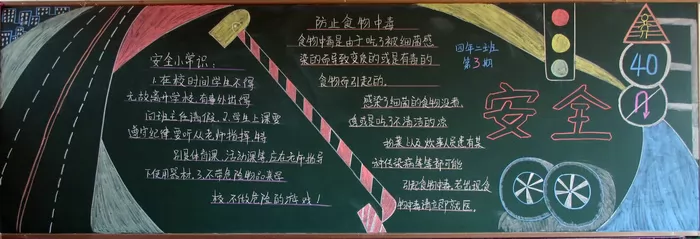 安全小常识：
1.在校时间学生不得
无故离开学校，有事外出得
向班主任请假。2.学生上课要
遵守纪律要听从老师指挥，特
别具体育课、活动课等应在老师指导
下使用器材。3.不带危险物品来学
校，不做危险的游戏！
防止食物中毒
食物中毒是由于吃了被细菌感
染的而导致变质的或是有毒的
食物而引起的。
感染了细菌的食物没煮
透或是吃了不清洁的凉
拌菜以及炊事人员患有某
讨任染病等等都可能
引起食物中毒，若出现食
物中毒请立即就医。
四年二班
第3期
安全
40